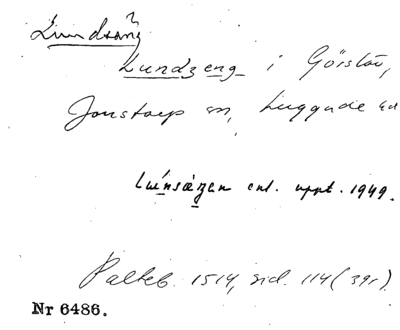 Lundsäng
Lundzeng i Görslöv,
Jonstorp sn, Luggude hd
Lunsängen enl. uppt. 1949.
Palteb. 1514, sid. 114 (39r).
Nr 6486.